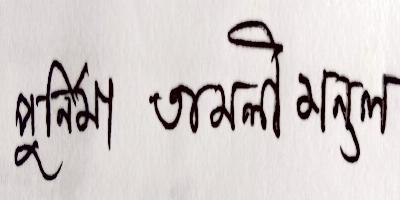 পুর্নিমা তামলী মন্ডল